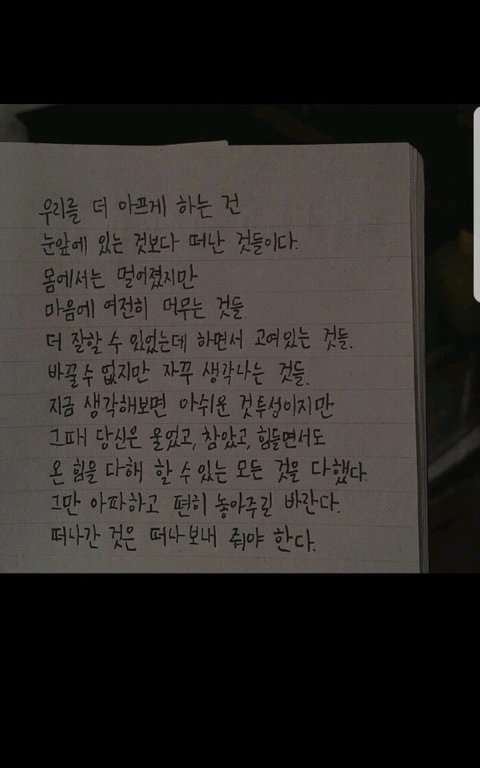 우리를 더 아프게 하는 건
눈앞에 있는 것보다 떠난 것들이다.
몸에서는 멀어졌지만
마음에 여전히 머무는 것들.
더 잘할 수 있었는데 하면서 고여있는 것들.
바꿀 수 없지만 자꾸 생각나는 것들.
지금 생각해보면 아쉬운 것투성이지만
그때 당신은 울었고, 참았고, 힘들면서도
온 힘을 다해 할 수 있는 모든 것을 다했다.
그만 아파하고 편히 놓아주길 바란다.
떠나간 것은 떠나보내 줘야 한다.